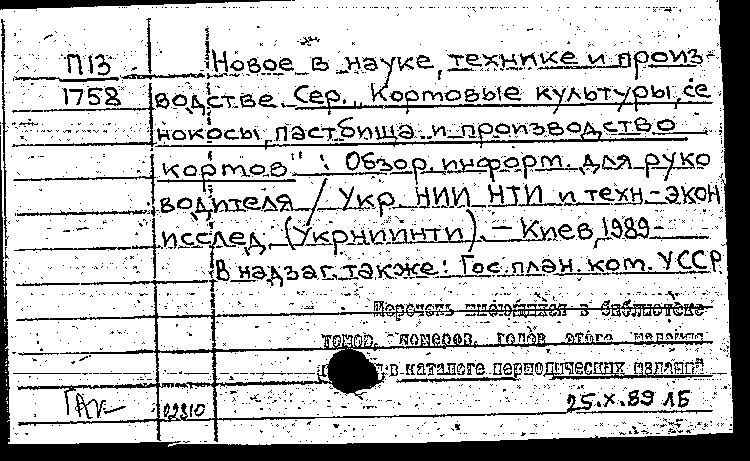 П13 Новое в науке, технике и произ-
1758 водстве. Сер. „Кортовые культуры, се
нокосы, пастбища и производство
кортов" : Обзор. информ. для руко
водителя / Укр. НИИ НТИ и техн.-экон
исслед. (УкрНИИНТИ). – Киев, 1989–
В надзаг. также: Гос. план. ком. УССР
Перечень имеющихся в библиотеке
томов, номеров, годов этого издания
в каталоге периодических изданий
02810 25.X.89 ЛБ